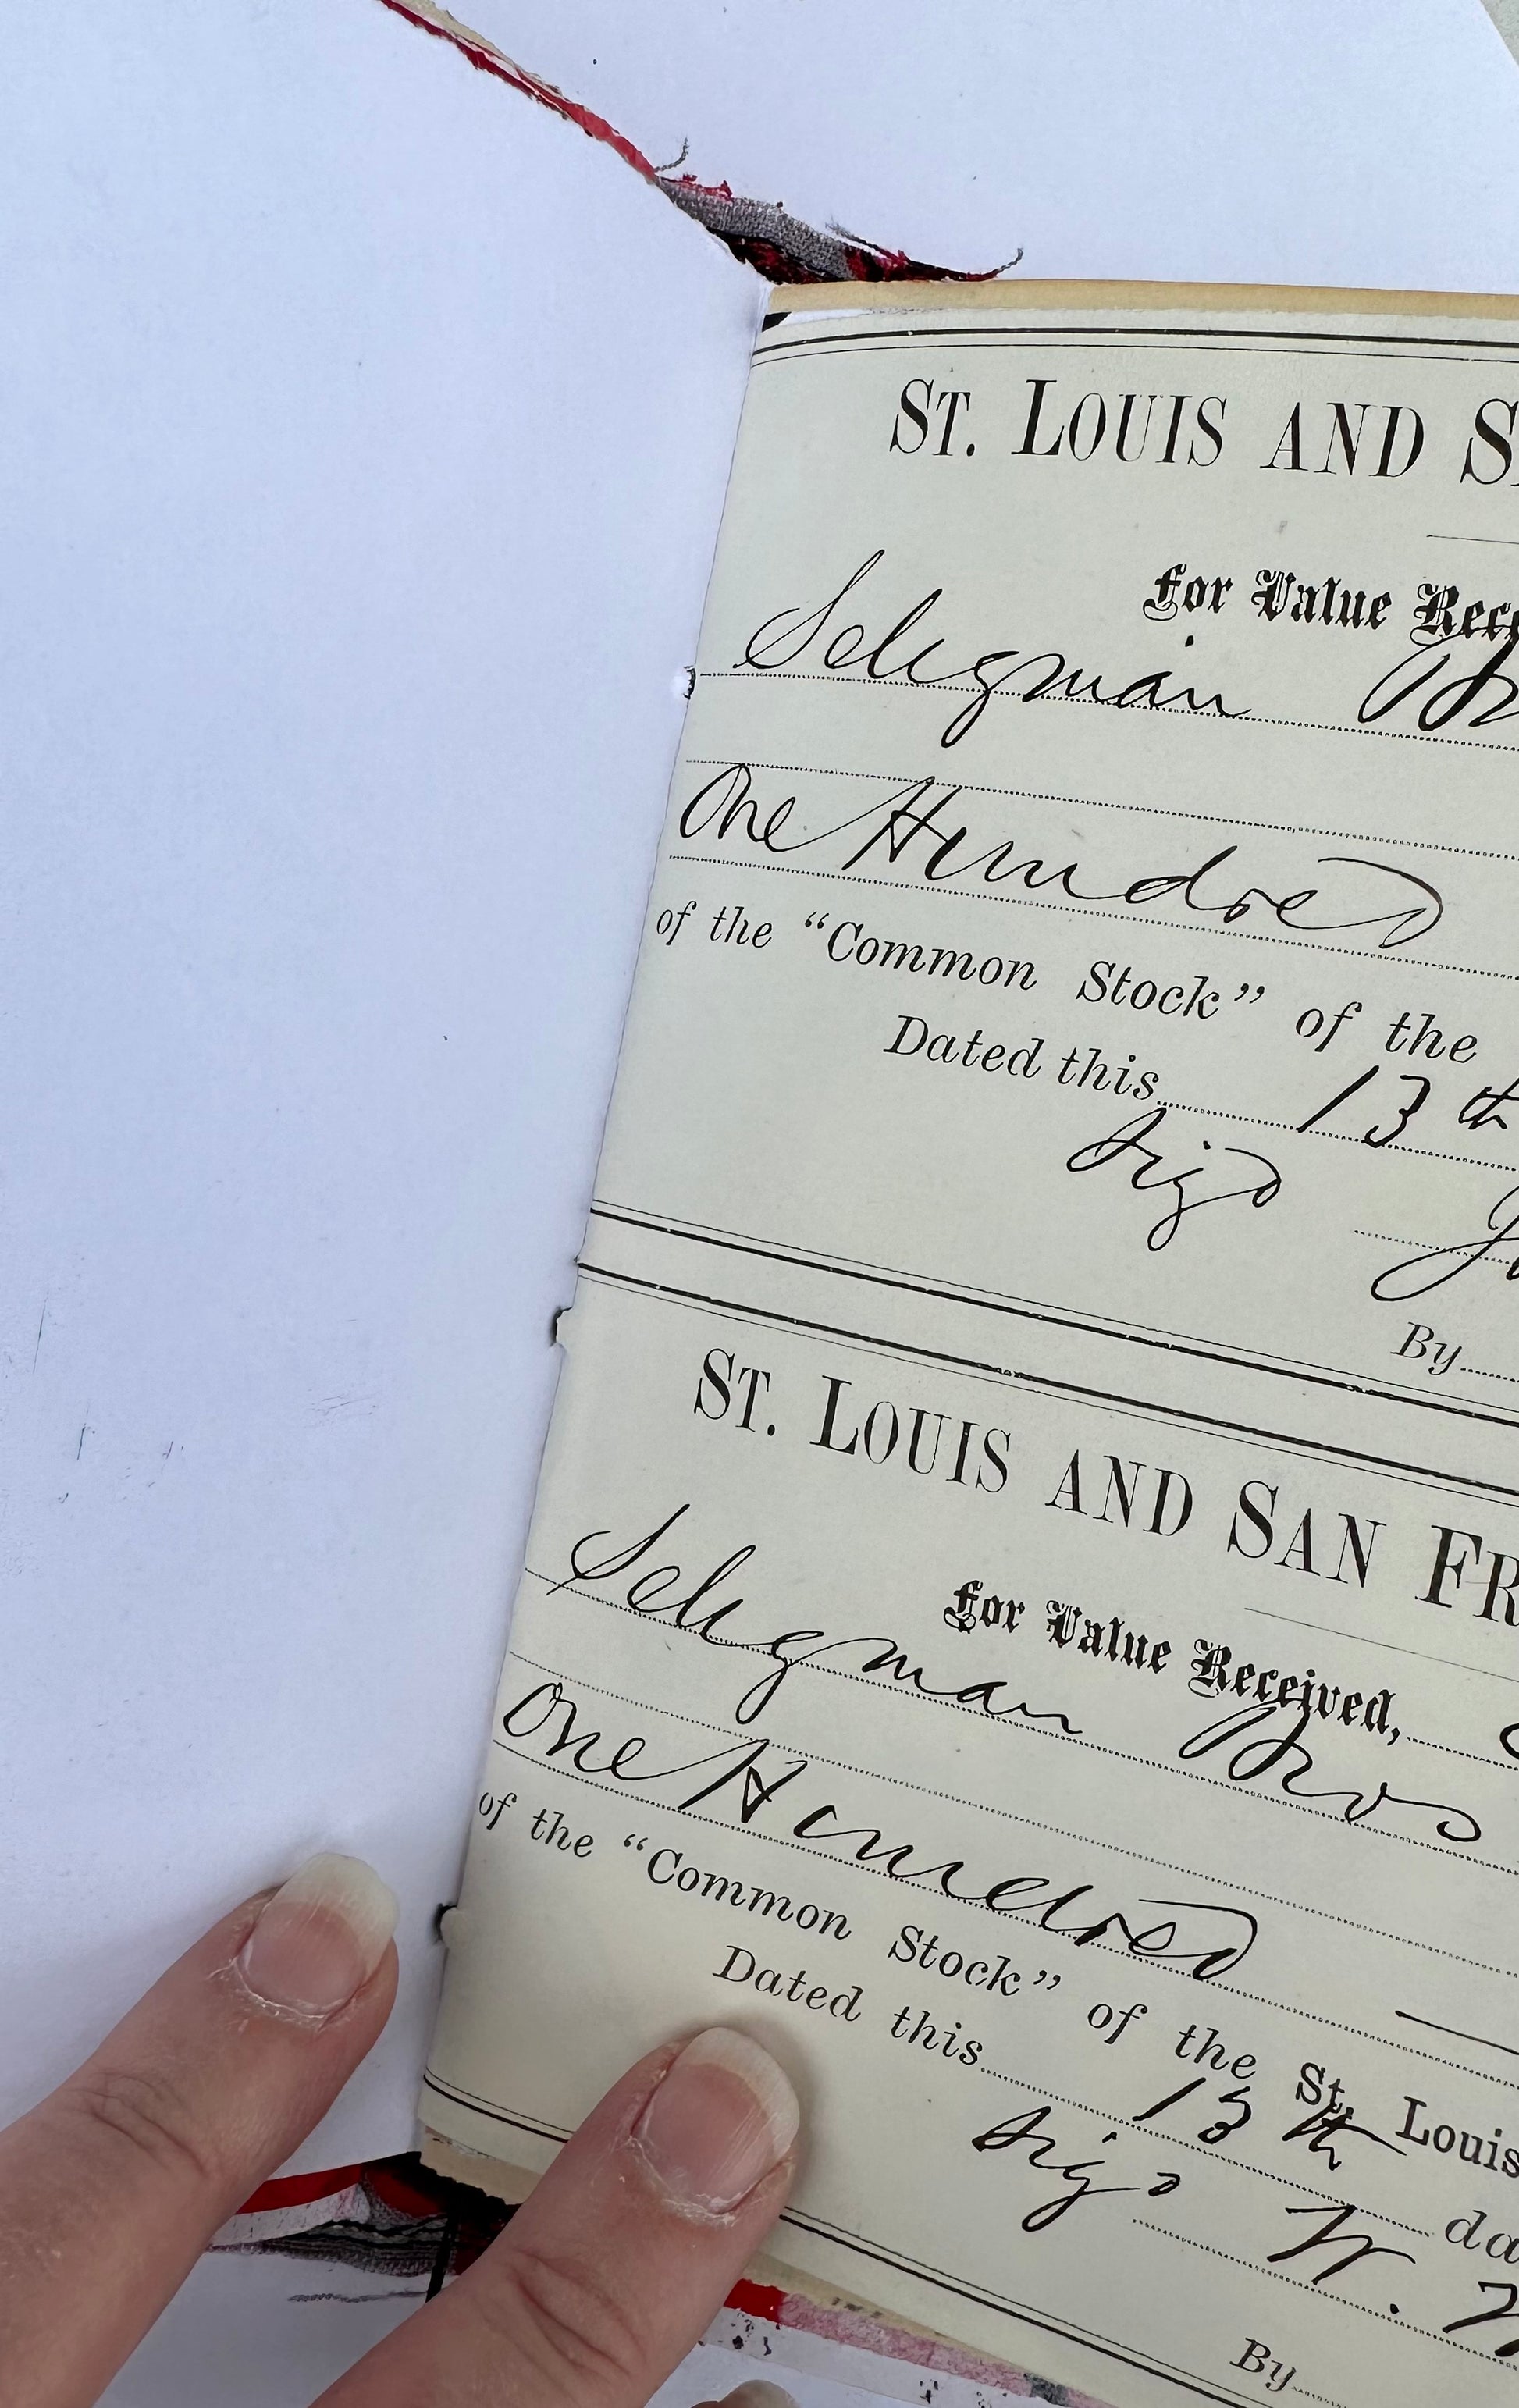 ST. LOUIS AND S
For Value Rece
Selegman Br
One Hundred
of the "Common Stock" of the
Dated this 13th
Sigd
By
ST. LOUIS AND SAN FR
For Value Received,
Selegman Bros
One Hundred
of the "Common Stock" of the St. Louis
Dated this 13th da
Sigd W.
By